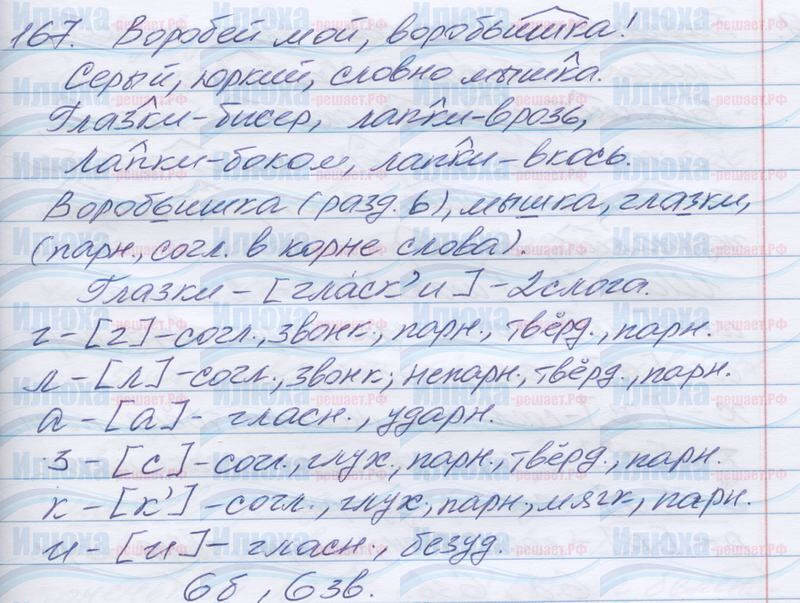 167. Воробей мой, воробьишка!
Серый, юркий, словно мышка.
Глазки-бисер, лапки-врозь,
Лапки-боком, лапки-вкось.
Воробьишка (разд. ь), мышка, глазки,
(парн., согл. в корне слова).
Глазки - [гла́ск'и] - 2 слога.
г - [г] - согл., звонк., парн., твёрд., парн.
л - [л] - согл., звонк., непарн., твёрд., парн.
а - [а] - гласн., ударн.
з - [с] - согл., глух., парн., твёрд., парн.
к - [к'] - согл., глух, парн, мягк, парн.
и - [и] - гласн., безуд.
6б, 6зв.